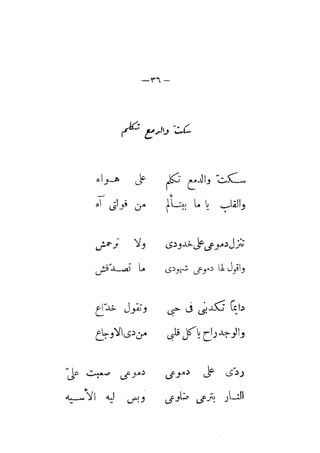 — ٣٦ —
سكت والدمع تكلم
سكت والدمع تكلم على هواه
والقلب يا ما بيتألم من قولتى آه
تنزل دموعى على خدودى ولا ترحمش
واقول لها دموعى شهودى ما تصدقش
دايماً تكدبنى فى حبى وتقول خداع
والوجد راح ياكل قلبى من دى الاوجاع
ردى على دموعى دموعى صعبت علىّ
النار بترعى ضلوعى وبس ليه الاسيه